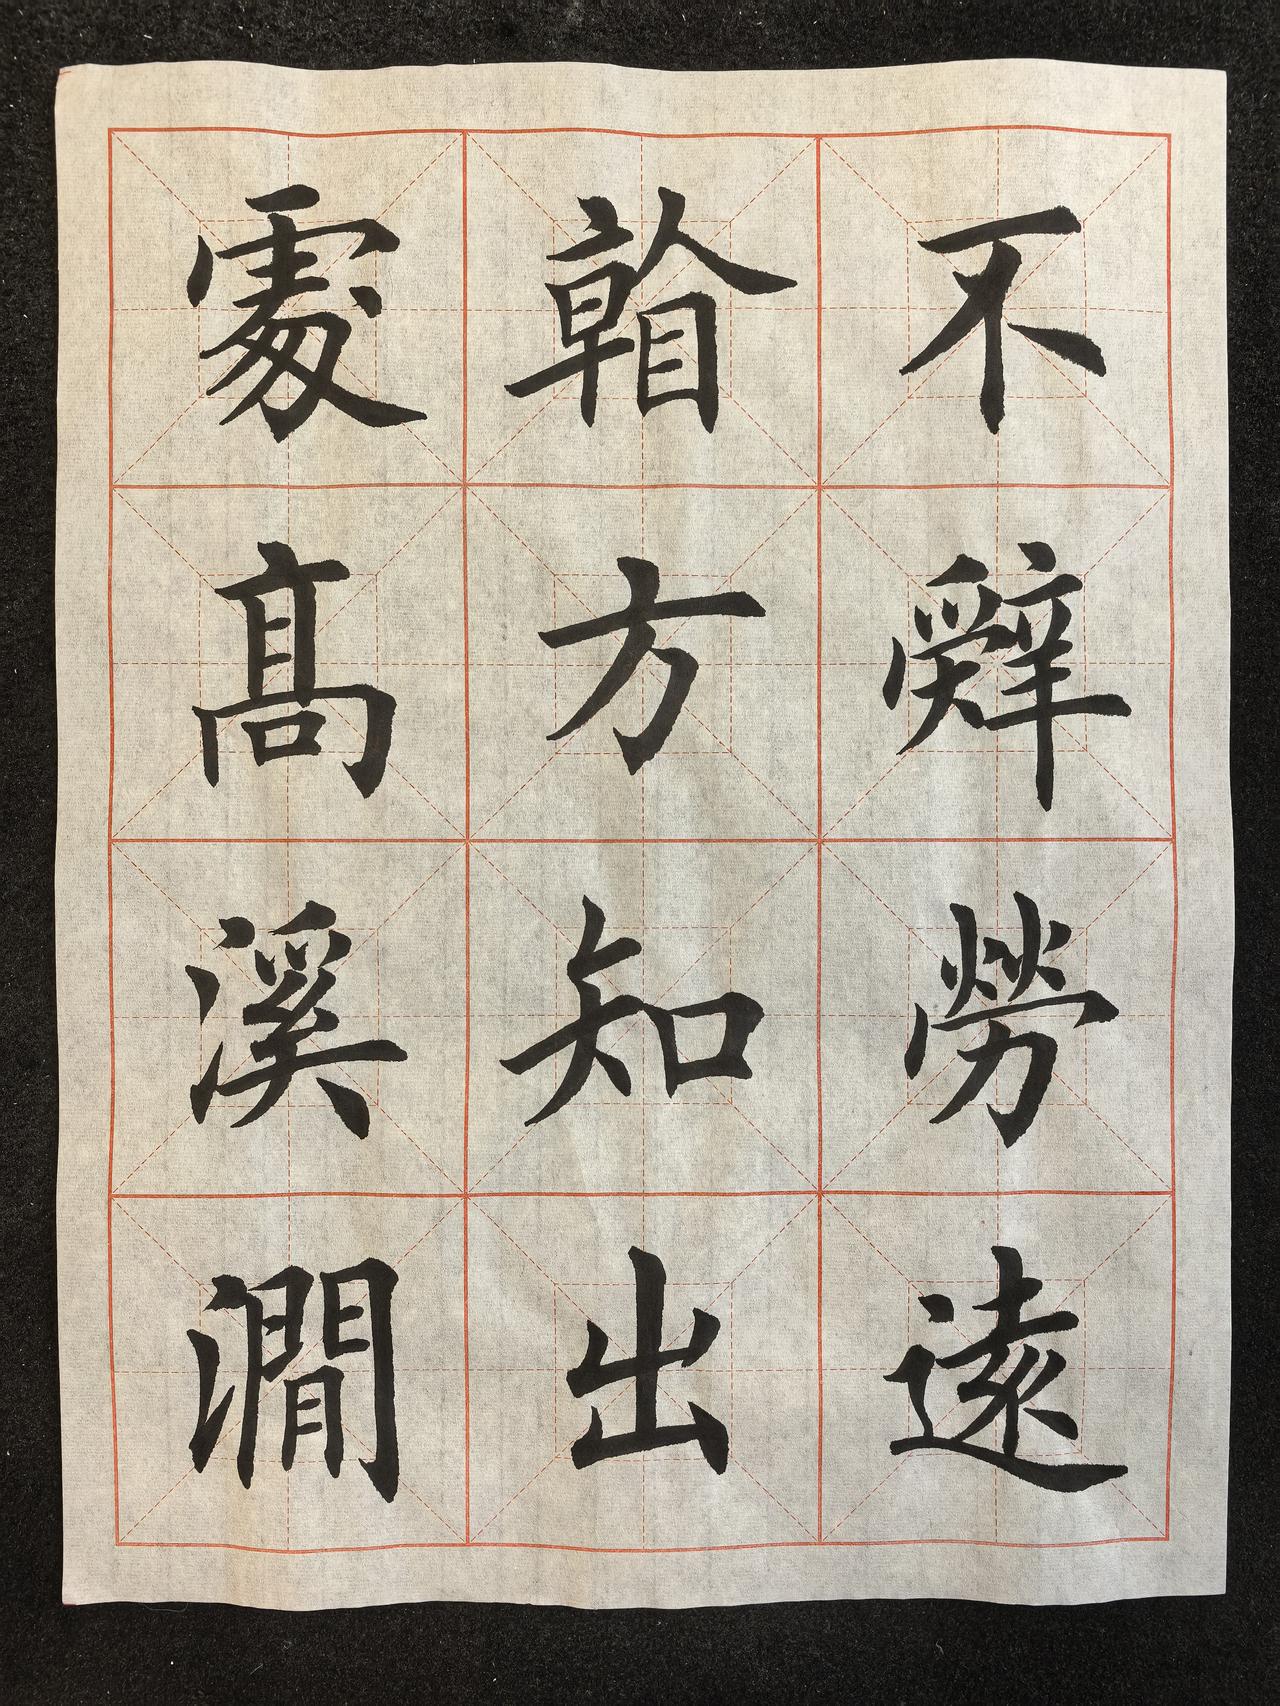 不辭勞遠
看方知出
處高溪澗